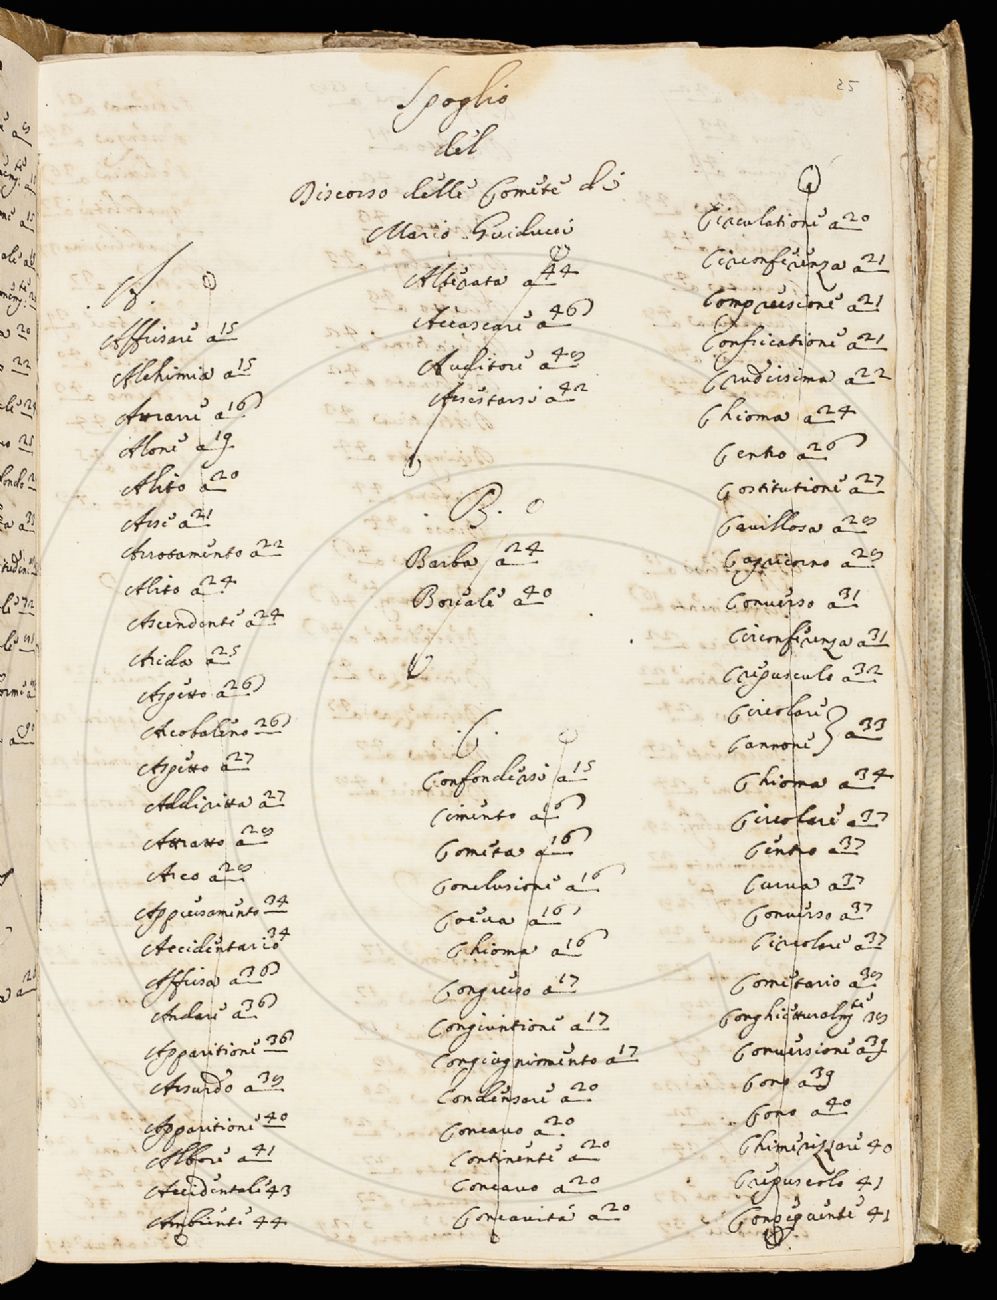 25
Spoglio
del
Discorso delle Comete di
Mario Guiducci
A.
Affisare a 15
Alchimia a 15
Attrarre a 16
Alone a 19
Alito a 20
Asse a 21
Arrotamento a 22
Alito a 24
Ascendente a 24
Arida a 25
Aspetto a 26
Arcobaleno 26
Aspetto a 27
Addiritta a 27
Attratto a 28
Arco a 28
Appressamento 34
Accidentario 34
Affissa a 36
Andare a 36
Apparitione 36
Assurdo a 38
Apparitione 40
Albore a 41
Accidentale 43
Ambiente 44
Alterata a 44
Accascare a 46
Auditore a 48
Accertarsi a 42
B.
Barba a 24
Boreale a 40
C.
Confondersi a 15
Cimento a 16
Cometa a 16
Conclusione a 16
Coeva a 16
Chioma a 16
Congresso a 17
Congiuntione a 17
Congiugnimento a 17
Condensare a 20
Concavo a 20
Continente a 20
Concavo a 20
Concavità a 20
Circulatione a 20
Circonferenza a 21
Compressione a 21
Conficcatione a 21
Crudissima a 22
Chioma a 24
Centro a 26
Costitutione a 27
Cavillosa a 28
Capricorno a 28
Converso a 31
Circonferenza a 31
Crepusculo a 32
Circolare
Cannone } a 33
Chioma a 34
Circolare a 37
Centro a 37
Curva a 37
Converso a 37
Circolare a 37
Cometario a 38
Conghietturalmte 38
Conversione a 39
Cono a 39
Cono a 40
Chimerizzare 40
Crepuscolo 41
Conseguente 41